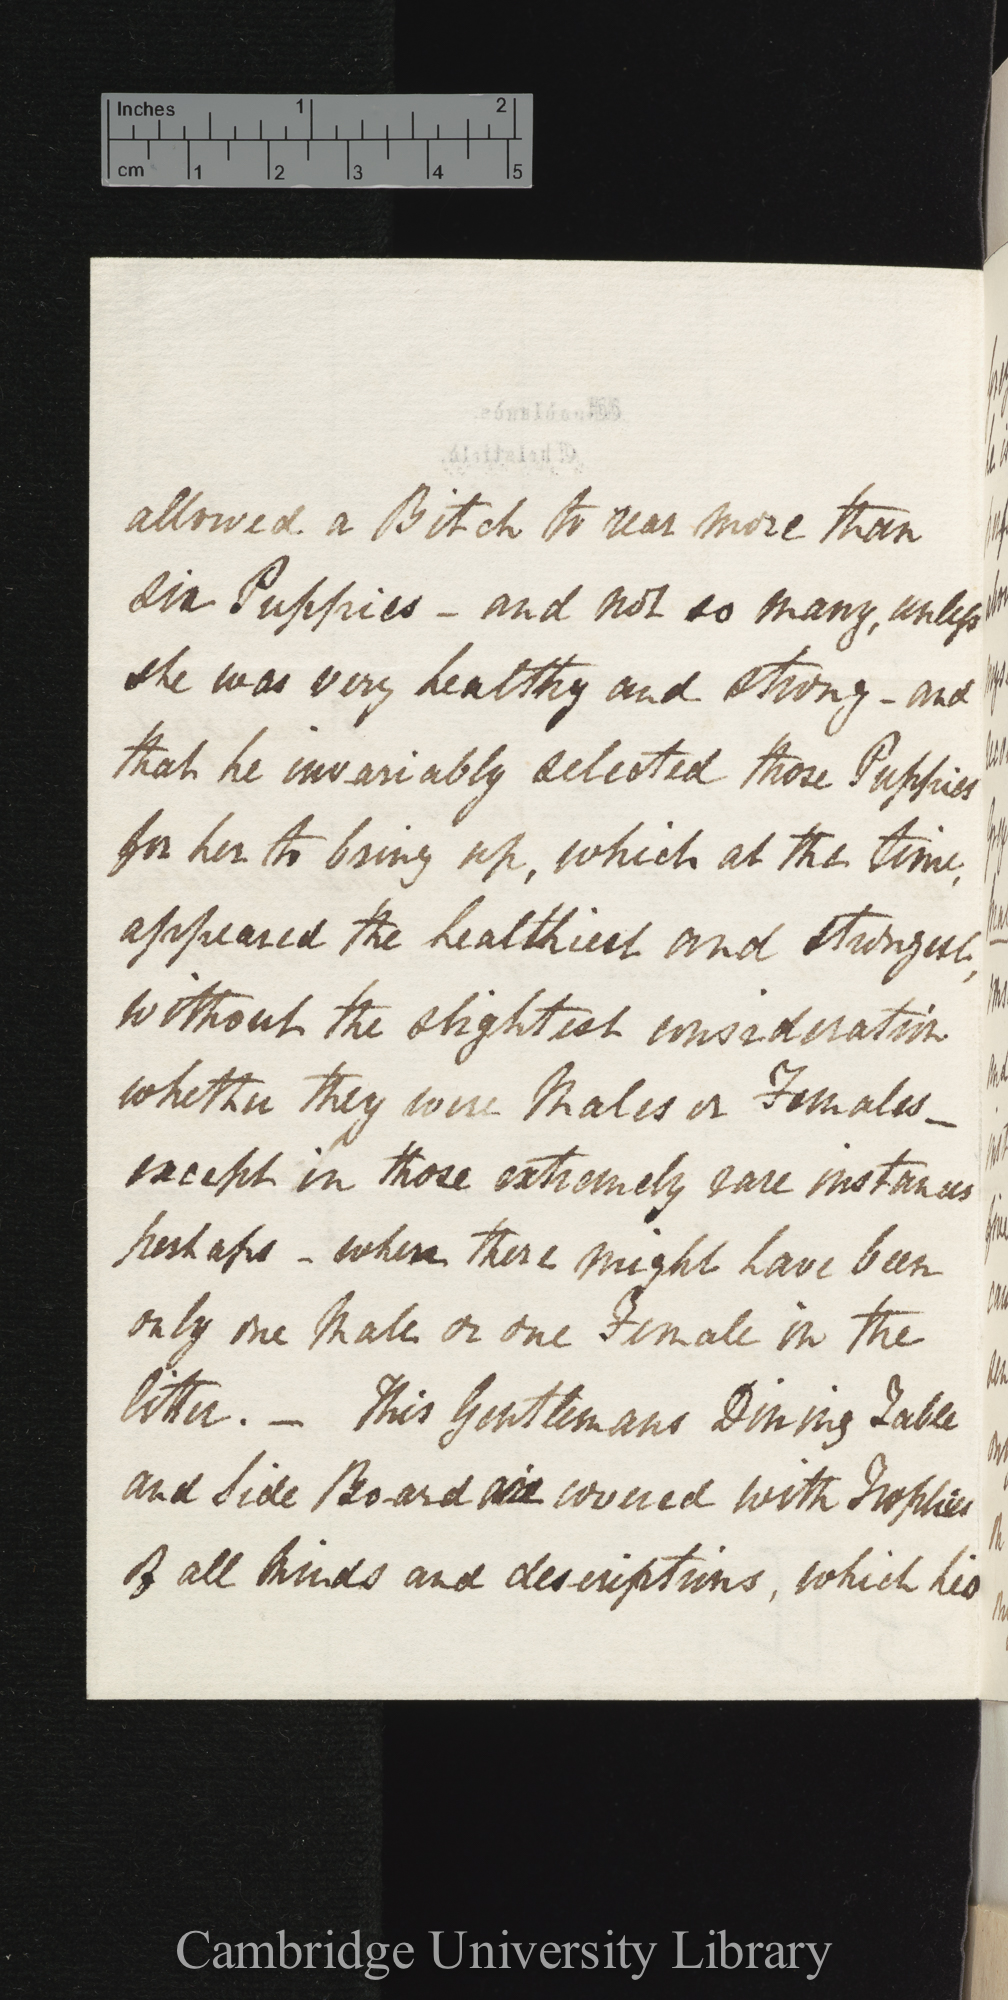 Inches 1 2
cm 1 2 3 4 5
allowed a Bitch to rear more than
six Puppies – and not so many, unless
she was very healthy and strong – and
that he invariably selected those Puppies
for her to bring up, which at the time,
appeared the healthiest and strongest,
without the slightest consideration
whether they were Males or Females –
except in those extremely rare instances
perhaps – when there might have been
only one Male or one Female in the
litter. – This Gentlemans Dining Table
and Side Board are covered with Trophies
of all kinds and descriptions, which his
Cambridge University Library